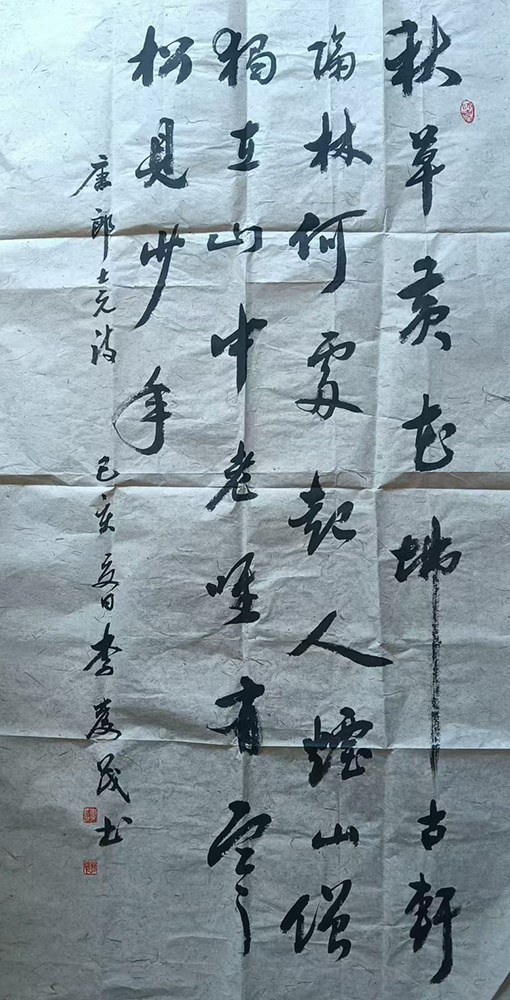 秋草黄花拂古軒
隔林何處起人煙山僧
獨在山中老唯有寒
松見少年
唐郎士元诗 己亥夏日李慶茂书